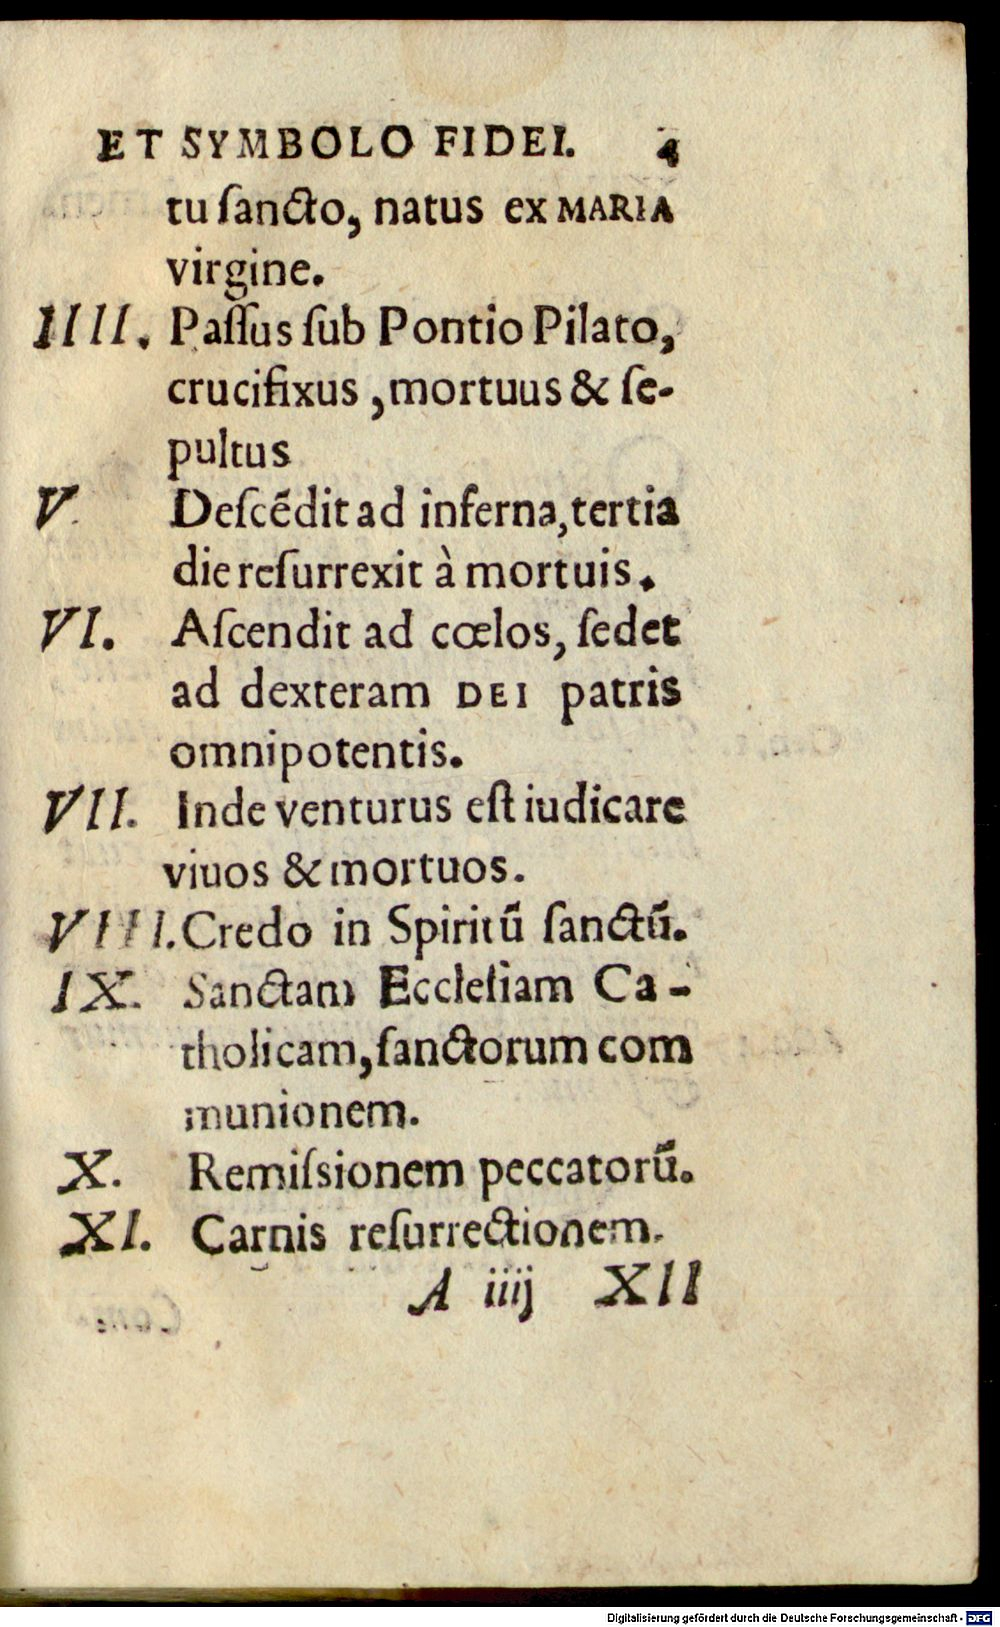 ET SYMBOLO FIDEI. 4
tu ſancto, natus ex MARIA
virgine.
IIII. Paſſus ſub Pontio Pilato,
crucifixus, mortuus & ſe-
pultus
V. Deſcēdit ad inferna, tertia
die reſurrexit à mortuis.
VI. Aſcendit ad cœlos, ſedet
ad dexteram DEI patris
omnipotentis.
VII. Inde venturus eſt iudicare
viuos & mortuos.
VIII. Credo in Spiritū ſanctū.
IX. Sanctam Eccleſiam Ca-
tholicam, ſanctorum com
munionem.
X. Remiſsionem peccatorū.
XI. Carnis reſurrectionem.
A iiij XII
Digitalisierung gefördert durch die Deutsche Forschungsgemeinschaft - DFG